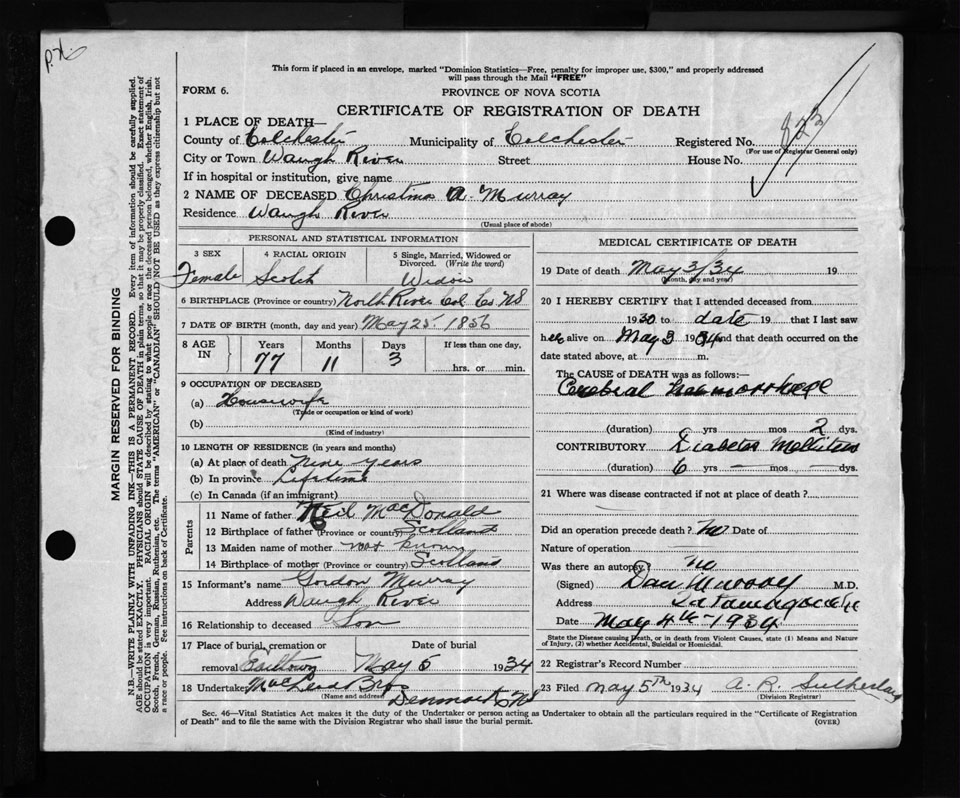 P.H.
This form if placed in an envelope, marked "Dominion Statistics—Free, penalty for improper use, $300," and properly addressed
will pass through the Mail "FREE"
FORM 6.
PROVINCE OF NOVA SCOTIA
CERTIFICATE OF REGISTRATION OF DEATH
1 PLACE OF DEATH—
County of Colchester Municipality of Colchester Registered No. 823
(For use of Registrar General only)
City or Town Waugh River Street House No.
If in hospital or institution, give name
2 NAME OF DECEASED Christina A. Murray
Residence Waugh River
(Usual place of abode)
MARGIN RESERVED FOR BINDING
N.B.—WRITE PLAINLY WITH UNFADING INK—THIS IS A PERMANENT RECORD. Every item of information should be carefully supplied.
AGE should be stated EXACTLY. PHYSICIANS should STATE CAUSE OF DEATH in plain terms, so that it may be properly classified. Exact statement of
OCCUPATION is very important. RACIAL ORIGIN will be described by stating to what people or race the deceased person belonged, whether English, Irish,
Scotch, French, German, Russian, Ruthenian, etc. The terms "AMERICAN" or "CANADIAN" SHOULD NOT BE USED as they express citizenship but not
a race or people. See instructions on back of Certificate.
PERSONAL AND STATISTICAL INFORMATION
3 SEX 4 RACIAL ORIGIN 5 Single, Married, Widowed or
Divorced. (Write the word)
Female Scotch Widow
6 BIRTHPLACE (Province or country) North River Col. Co. NS
7 DATE OF BIRTH (month, day and year) May 25. 1856
8 AGE IN Years Months Days If less than one day,
77 11 3 hrs. or min.
9 OCCUPATION OF DECEASED
(a) Housewife
(Trade or occupation or kind of work)
(b)
(Kind of industry)
10 LENGTH OF RESIDENCE (in years and months)
(a) At place of death Nine years
(b) In province Lifetime
(c) In Canada (if an immigrant)
Parents
11 Name of father Neil MacDonald
12 Birthplace of father (Province or country) Scotland
13 Maiden name of mother not known
14 Birthplace of mother (Province or country) Scotland
15 Informant's name Gordon Murray
Address Waugh River
16 Relationship to deceased Son
17 Place of burial, cremation or Date of burial
removal Earltown May 5 1934
18 Undertaker MacLeod Bros
(Name and address) Denmark NS
MEDICAL CERTIFICATE OF DEATH
19 Date of death May 3/34 19
(Month, day and year)
20 I HEREBY CERTIFY that I attended deceased from
1930 to date 19 that I last saw
her alive on May 3 1934 and that death occurred on the
date stated above, at m.
The CAUSE of DEATH was as follows:—
Cerebral haemorrhage
(duration) yrs mos 2 dys.
CONTRIBUTORY Diabetes Mellitus
(duration) 6 yrs — mos — dys.
21 Where was disease contracted if not at place of death?
Did an operation precede death? No Date of
Nature of operation
Was there an autopsy? no
(Signed) Dan Murray M.D.
Address Tatamagouche
Date May 4th - 1934
State the Disease causing Death, or in death from Violent Causes, state (1) Means and Nature
of Injury, (2) whether Accidental, Suicidal or Homicidal.
22 Registrar's Record Number
23 Filed May 5th 1934 A. R. Sutherland
(Division Registrar)
Sec. 46—Vital Statistics Act makes it the duty of the Undertaker or person acting as Undertaker to obtain all the particulars required in the "Certificate of Registration
of Death" and to file the same with the Division Registrar who shall issue the burial permit. (OVER)